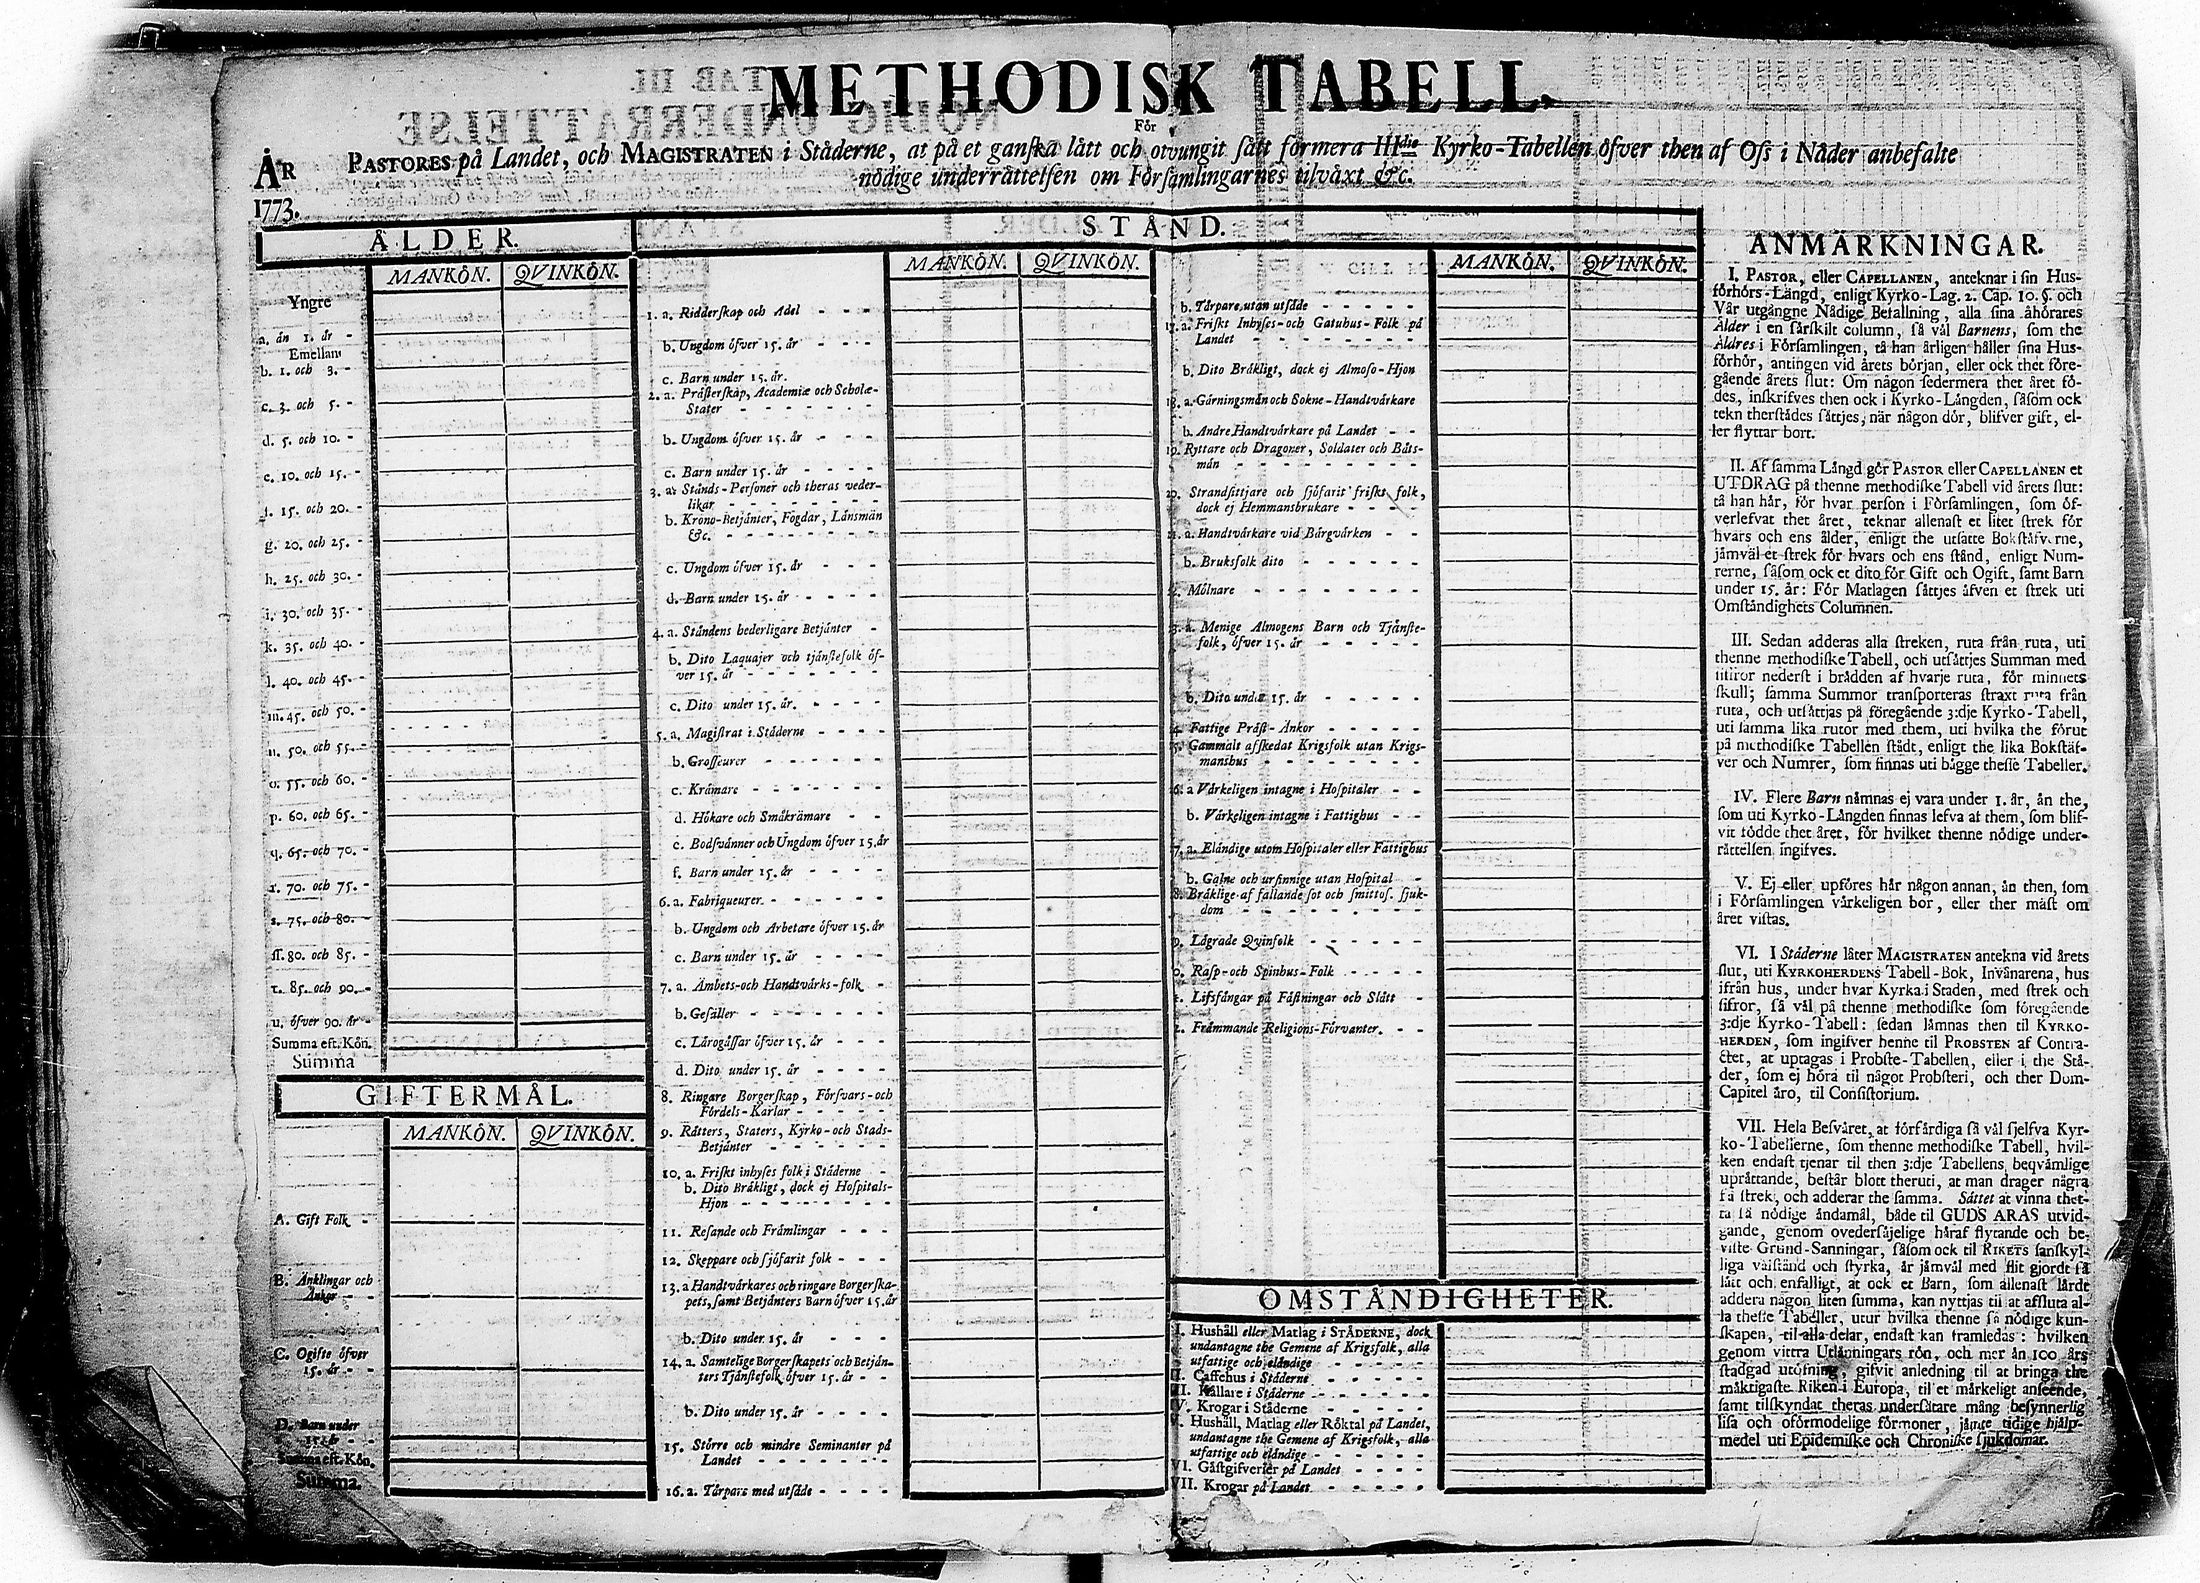 METHODISK TABELL.
För
ÅR
1773.
PASTORES på Landet, och MAGISTRATEN i Ståderne, at på et ganſka lått och otvungit ſått formera IIIdie Kyrko-Tabellen öfver then af Oſs i Nåder anbefalte
nödige underråttelſen om Förſamlingarnes tilvåxt &c.
ÅLDER.
MANKÖN. QVINKÖN.
Yngre
a. ån 1. år -
Emellan
b. 1. och 3. -
c. 3. och 5. -
d. 5. och 10. -
e. 10. och 15. -
f. 15. och 20. -
g. 20. och 25. -
h. 25. och 30. -
i. 30. och 35. -
k. 35. och 40. -
l. 40. och 45. -
m. 45. och 50. -
n. 50. och 55. -
o. 55. och 60. -
p. 60. och 65. -
q. 65. och 70. -
r. 70. och 75. -
s. 75. och 80. -
ſſ. 80. och 85. -
t. 85. och 90. -
u. öfver 90. år -
Summa eft. Kön.
Summa
GIFTERMÅL.
MANKÖN. QVINKÖN.
A. Gift Folk -
B. Änklingar och
Änkor - -
C. Ogifte öfver
15. år - -
D. Barn under
15. år -
Summa eft. Kön.
Summa.
STÅND.
MANKÖN. QVINKÖN.
1. a. Ridderſkap och Adel - - -
b. Ungdom öfver 15. år - - -
c. Barn under 15. år.
2. a. Pråſterſkåp, Academiæ och Scholæ-
Stater - - - - - - -
b. Ungdom öfver 15. år - - - -
c. Barn under 15. år - - - - -
3. a. Stånds-Perſoner och theras veder-
likar - - - - - - - -
b. Krono-Betjånter, Fogdar, Lånsmån
&c. - - - - - - - -
c. Ungdom öfver 15. år - - - -
d. Barn under 15. år - - - - -
4. a. Ståndens hederligare Betjånter -
b. Dito Laquajer och tjånſtefolk öf-
ver 15. år - - - - - - -
c. Dito under 15. år. - - - -
5. a. Magiſtrat i Ståderne - - - -
b. Groſſeurer - - - - - -
c. Kråmare - - - - - - -
d. Hökare och Småkråmare - -
e. Bodſvånner och Ungdom öfver 15. år
f. Barn under 15. år - - - -
6. a. Fabriqueurer - - - - - -
b. Ungdom och Arbetare öfver 15. år
c. Barn under 15. år - - - -
7. a. Åmbets- och Handtvårks-folk -
b. Geſåller - - - - - - -
c. Lårogåſſar öfver 15. år - - -
d. Dito under 15. år - - - -
8. Ringare Borgerſkap, Förſvars- och
Fördels-Karlar - - - - -
9. Råtters, Staters, Kyrko- och Stads-
Betjånter - - - - - -
10. a. Friſkt inhyſes folk i Ståderne -
b. Dito Bråkligt, dock ej Hoſpitals-
Hjon - - - - - - - -
11. Reſande och Fråmlingar - - -
12. Skeppare och ſjöfarit folk - - -
13. a Handtvårkares och ringare Borgerſka-
pets, ſamt Betjånters Barn öfver 15. år
b. Dito under 15. år - - - -
14. a. Samtelige Borgerſkapets och Betjån-
ters Tjånſtefolk öfver 15. år - -
b. Dito under 15. år - - - -
15. Större och mindre Seminanter på
Landet - - - - - - -
16. a. Tårpare med utſåde - - - -
MANKÖN. QVINKÖN.
b. Tårpare utan utſåde - - - - -
17. a. Friſkt Inhyſes- och Gatuhus-Folk på
Landet - - - - - - - -
b. Dito Bråkligt, dock ej Almoſo-Hjon
18. a. Gårningsmån och Sokne-Handtvårkare
b. Andre Handtvårkare på Landet - -
19. Ryttare och Dragoner, Soldater och Båts-
mån - - - - - - - -
20. Strandſittjare och ſjöfarit friſkt folk,
dock ej Hemmansbrukare - - - -
21. a. Handtvårkare vid Bårgvårken - -
b. Bruksfolk dito - - - - - -
22. Mölnare - - - - - - - -
23. a. Menige Almogens Barn och Tjånſte-
folk, öfver 15. år - - - - - -
b. Dito under 15. år - - - - -
24. Fattige Pråſt-Änkor - - - - -
25. Gammalt afſkedat Krigsfolk utan Krigs-
manshus - - - - - - - -
26. a Vårkeligen intagne i Hoſpitaler - -
b. Vårkeligen intagne i Fattighus - -
27. a. Elåndige utom Hoſpitaler eller Fattighus
b. Galne och urſinnige utan Hoſpital -
28. Bråklige af fallande ſot och ſmittoſ. ſjuk-
dom - - - - - - - -
29. Lågrade Qvinfolk - - - - - -
30. Raſp- och Spinhus-Folk - - - - -
31. Lifsfångar på Fåſtningar och Slått - -
32. Fråmmande Religions-Förvanter. - -
OMSTÅNDIGHETER.
I. Hushåll eller Matlag i STÅDERNE, dock
undantagne the Gemene af Krigsfolk, alla
utfattige och elåndige - - - - -
II. Caffehus i Ståderne - - - - -
III. Kållare i Ståderne - - - - - -
IV. Krogar i Ståderne - - - - -
V. Hushåll, Matlag eller Röktal på Landet,
undantagne the Gemene af Krigsfolk, alla
utfattige och elåndige - - - - -
VI. Gåſtgifverier på Landet - - - -
VII. Krogar på Landet - - - - -
ANMÄRKNINGAR.
I. PASTOR, eller CAPELLANEN, anteknar i ſin Hus-
förhörs-Långd, enligt Kyrko-Lag. 2. Cap. 10. §. och
Vår utgångne Nådige Befallning, alla ſina åhörares
Ålder i en ſårſkilt column, ſå vål Barnens, ſom the
Äldres i Förſamlingen, tå han årligen håller ſina Hus-
förhör, antingen vid årets början, eller ock thet före-
gående årets ſlut: Om någon ſedermera thet året fö-
des, inſkrifves then ock i Kyrko-Långden, ſåſom ock
tekn therſtådes ſåttjes, når någon dör, blifver gift, el-
ler flyttar bort.
II. Af ſamma Långd gör PASTOR eller CAPELLANEN et
UTDRAG på thenne methodiſke Tabell vid årets ſlut:
tå han hår, för hvar perſon i Förſamlingen, ſom öf-
verlefvat thet året, teknar allenaſt et litet ſtrek för
hvars och ens ålder, enligt the utſatte Bokſtåfverne,
jåmvål et ſtrek för hvars och ens ſtånd, enligt Num-
rerne, ſåſom ock et dito för Gift och Ogift, ſamt Barn
under 15. år: För Matlagen ſåttjes åfven et ſtrek uti
Omſtåndighets Columnen.
III. Sedan adderas alla ſtreken, ruta från ruta, uti
thenne methodiſke Tabell, och utſåttjes Summan med
ſiffror nederſt i brådden af hvarje ruta, för minnets
ſkull; ſamma Summor tranſporteras ſtraxt ruta från
ruta, och utſåttjas på föregående 3:dje Kyrko-Tabell,
uti ſamma lika rutor med them, uti hvilka the förut
på methodiſke Tabellen ſtådt, enligt the lika Bokſtåf-
ver och Numrer, ſom finnas uti bågge theſſe Tabeller.
IV. Flere Barn nåmnas ej vara under 1. år, ån the,
ſom uti Kyrko-Långden finnas lefva af them, ſom blif-
vit födde thet året, för hvilket thenne nödige under-
råttelſen ingifves.
V. Ej eller upföres hår någon annan, ån then, ſom
i Förſamlingen vårkeligen bor, eller ther måſt om
året viſtas.
VI. I Ståderne låter MAGISTRATEN antekna vid årets
ſlut, uti KYRKOHERDENS Tabell-Bok, Invånarena, hus
ifrån hus, under hvar Kyrka i Staden, med ſtrek och
ſifror, ſå vål på thenne methodiſke ſom föregående
3:dje Kyrko-Tabell: ſedan låmnas then til KYRKO-
HERDEN, ſom ingifver henne til PROBSTEN af Contra-
ctet, at uptagas i Probſte-Tabellen, eller i the Ståd-
er, ſom ej höra til något Probſteri, och ther Dom-
Capitel åro, til Conſiſtorium.
VII. Hela Beſvåret, at förfårdiga ſå vål ſjelfva Kyr-
ko-Tabellerne, ſom thenne methodiſke Tabell, hvil-
ken endaſt tjenar til then 3:dje Tabellens beqvåmlige
upråttande, beſtår blott theruti, at man drager några
få ſtrek, och adderar the ſamma. Såttet at vinna thet-
ta ſå nödige åndamål, både til GUDS ÄRAS utvid-
gande, genom ovederſåjelige håraf flytande och be-
viſte Grund-Sanningar, ſåſom ock til RIKETS ſanſkyl-
liga vålſtånd och ſtyrka, år jåmvål med flit gjordt ſå
lått och enfalligt, at ock et Barn, ſom allenaſt lårdt
addera någon liten ſumma, kan nyttjas til at afſluta al-
la theſſe Tabeller, utur hvilka thenne ſå nödige kun-
ſkapen, til alla delar, endaſt kan framledas: hvilken
genom vittra Utlånningars rön, och mer ån 100 års
ſtadgad utöfning, gifvit anledning til at bringa the
måktigaſte Riken i Europa, til et mårkeligt anſeende,
ſamt tilſkyndat theras underſåtare mång beſynnerlig
liſa och oförmodelige förmoner, jåmte tidige hjålp-
medel uti Epidemiſke och Chroniſke ſjukdomar.